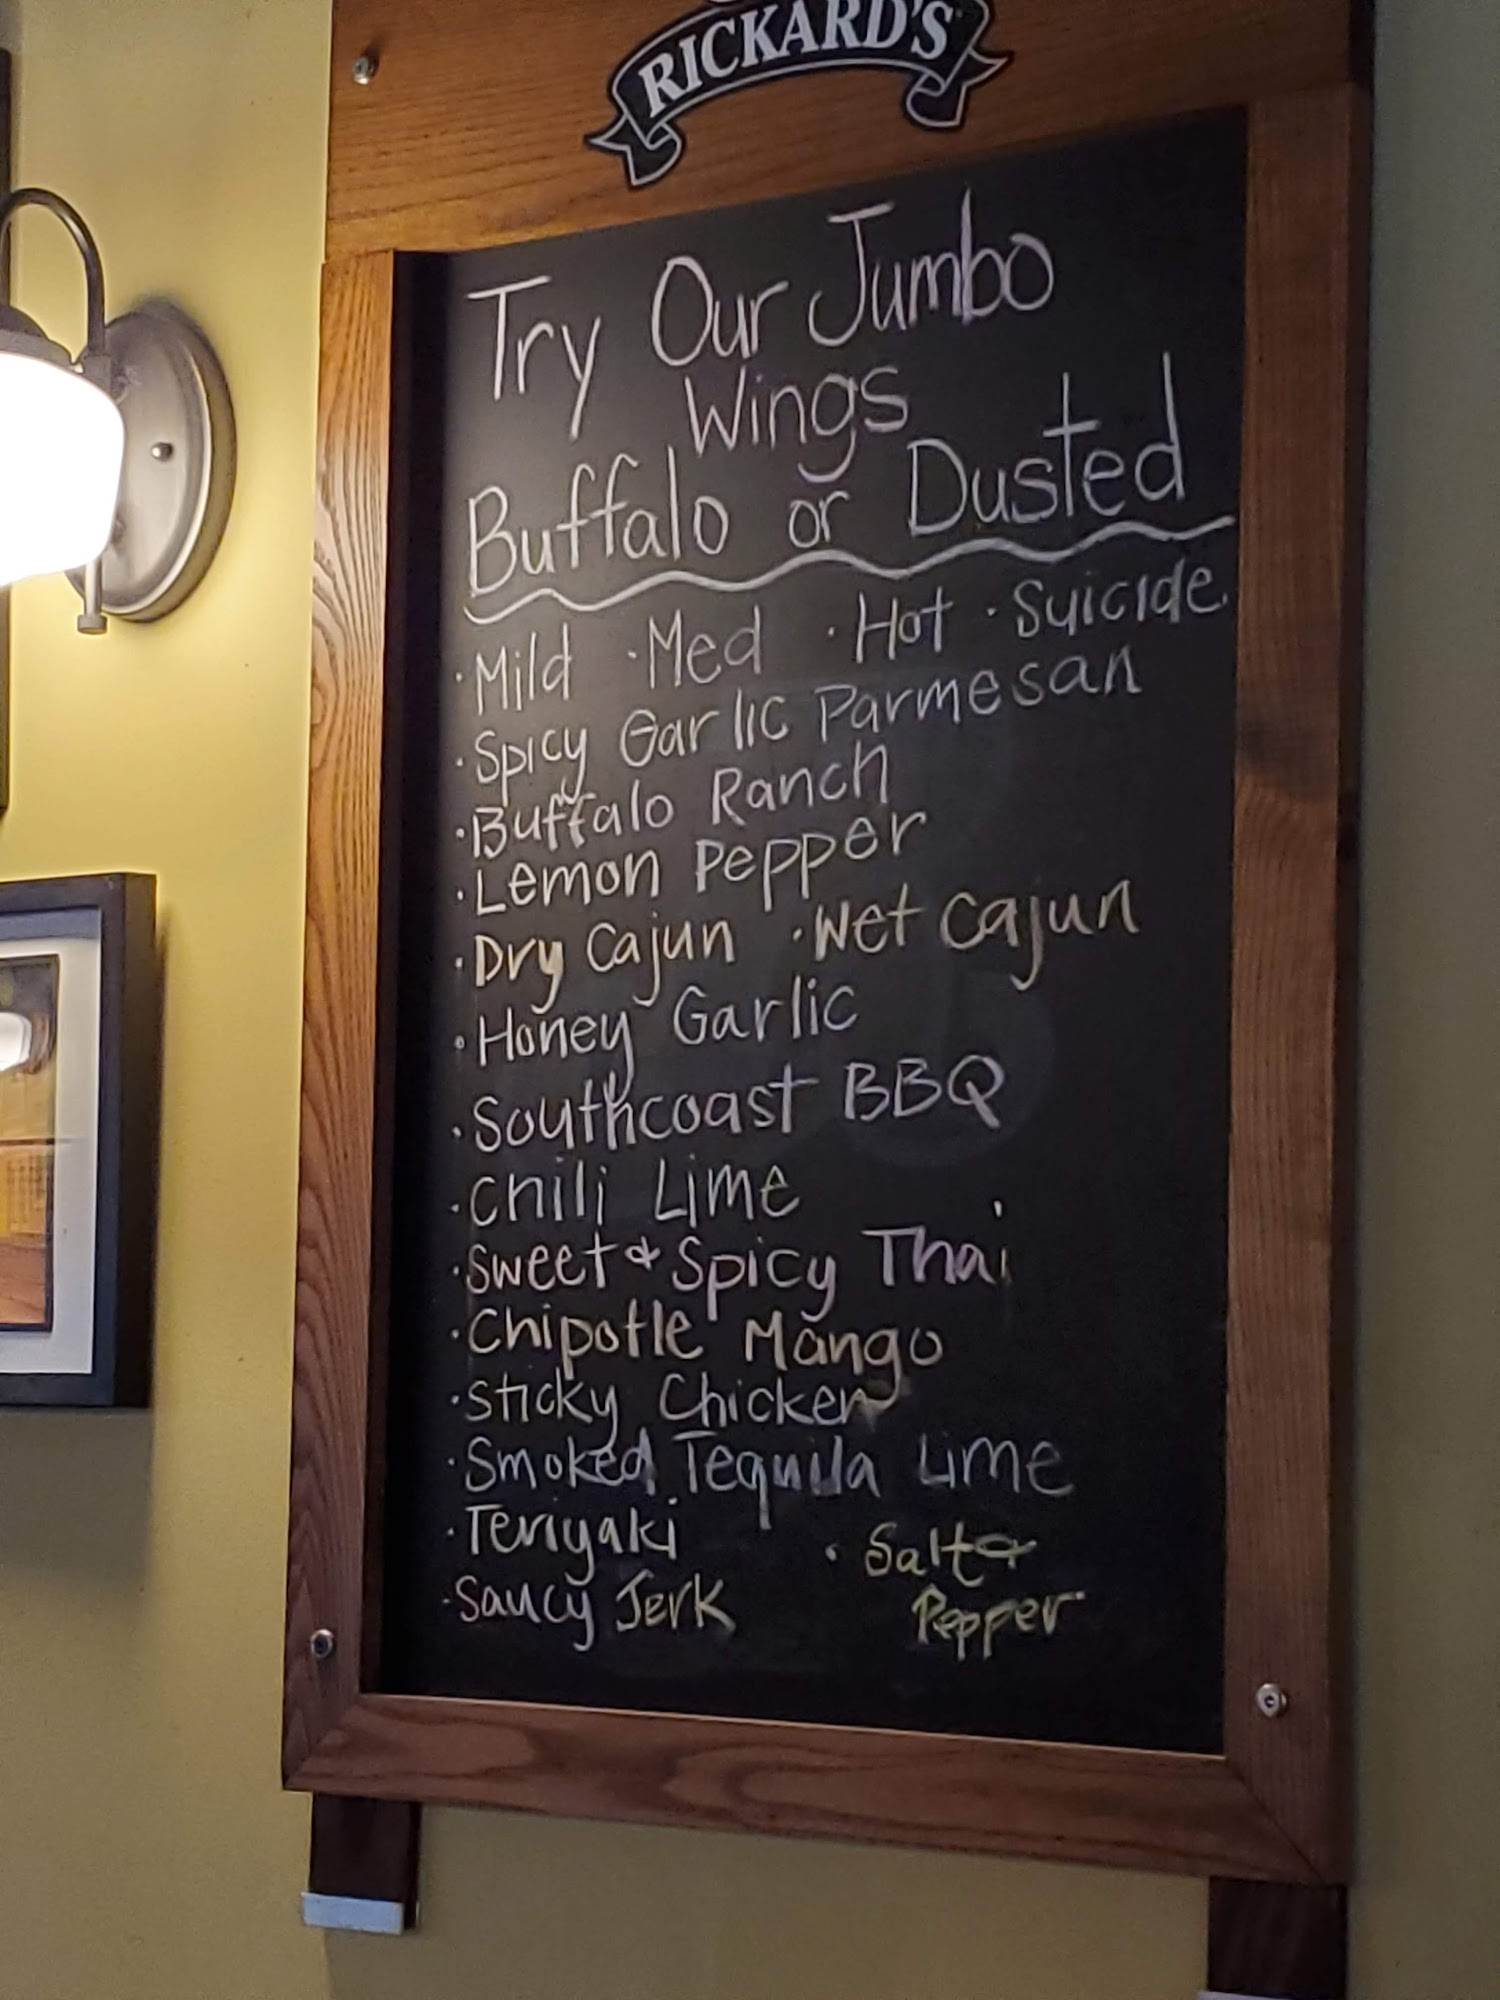 RICKARD'S
Try Our Jumbo
Wings
Buffalo or Dusted
· Mild · Med · Hot · Suicide
· Spicy Garlic Parmesan
· Buffalo Ranch
· Lemon Pepper
· Dry Cajun · Wet Cajun
· Honey Garlic
· Southcoast BBQ
· Chili Lime
· Sweet & Spicy Thai
· Chipotle Mango
· Sticky Chicken
· Smoked Tequila Lime
· Teriyaki
· Saucy Jerk
· Salt &
Pepper